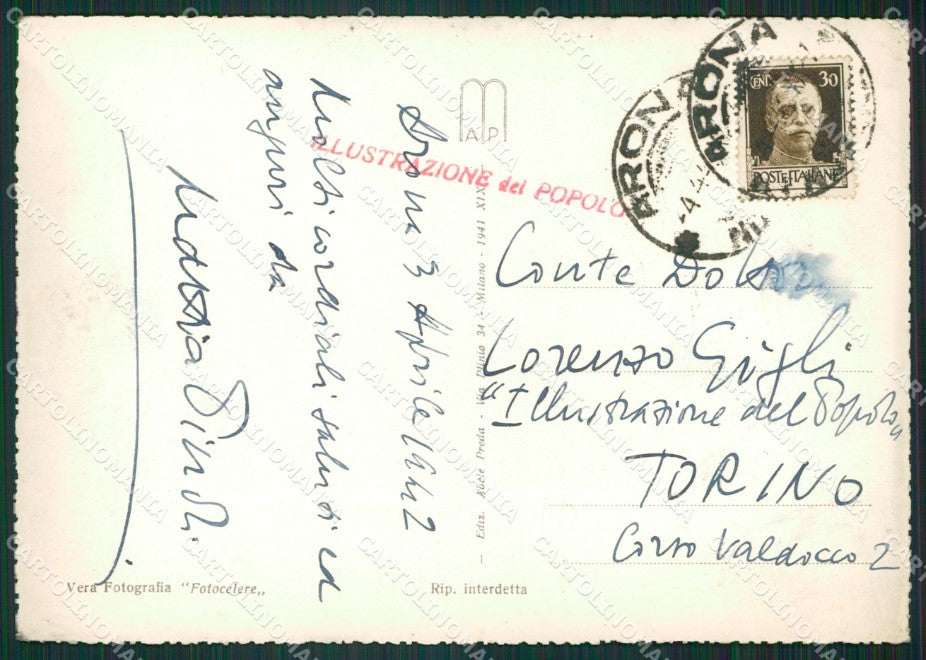 Arona 3 Aprile 1942
Molti cordiali saluti ed
auguri da
ILLUSTRAZIONE del POPOLO
AP
Ediz. Adele Preda - Milano - 1941 XIX
ARONA
ARONA
CENT. 30
POSTE ITALIANE
Conte Dott.
Lorenzo Gigli
"Illustrazione del Popolo"
TORINO
Corso Valdocco 2
Vera Fotografia "Fotocelere"
Rip. interdetta
CARTOLINOMANIA